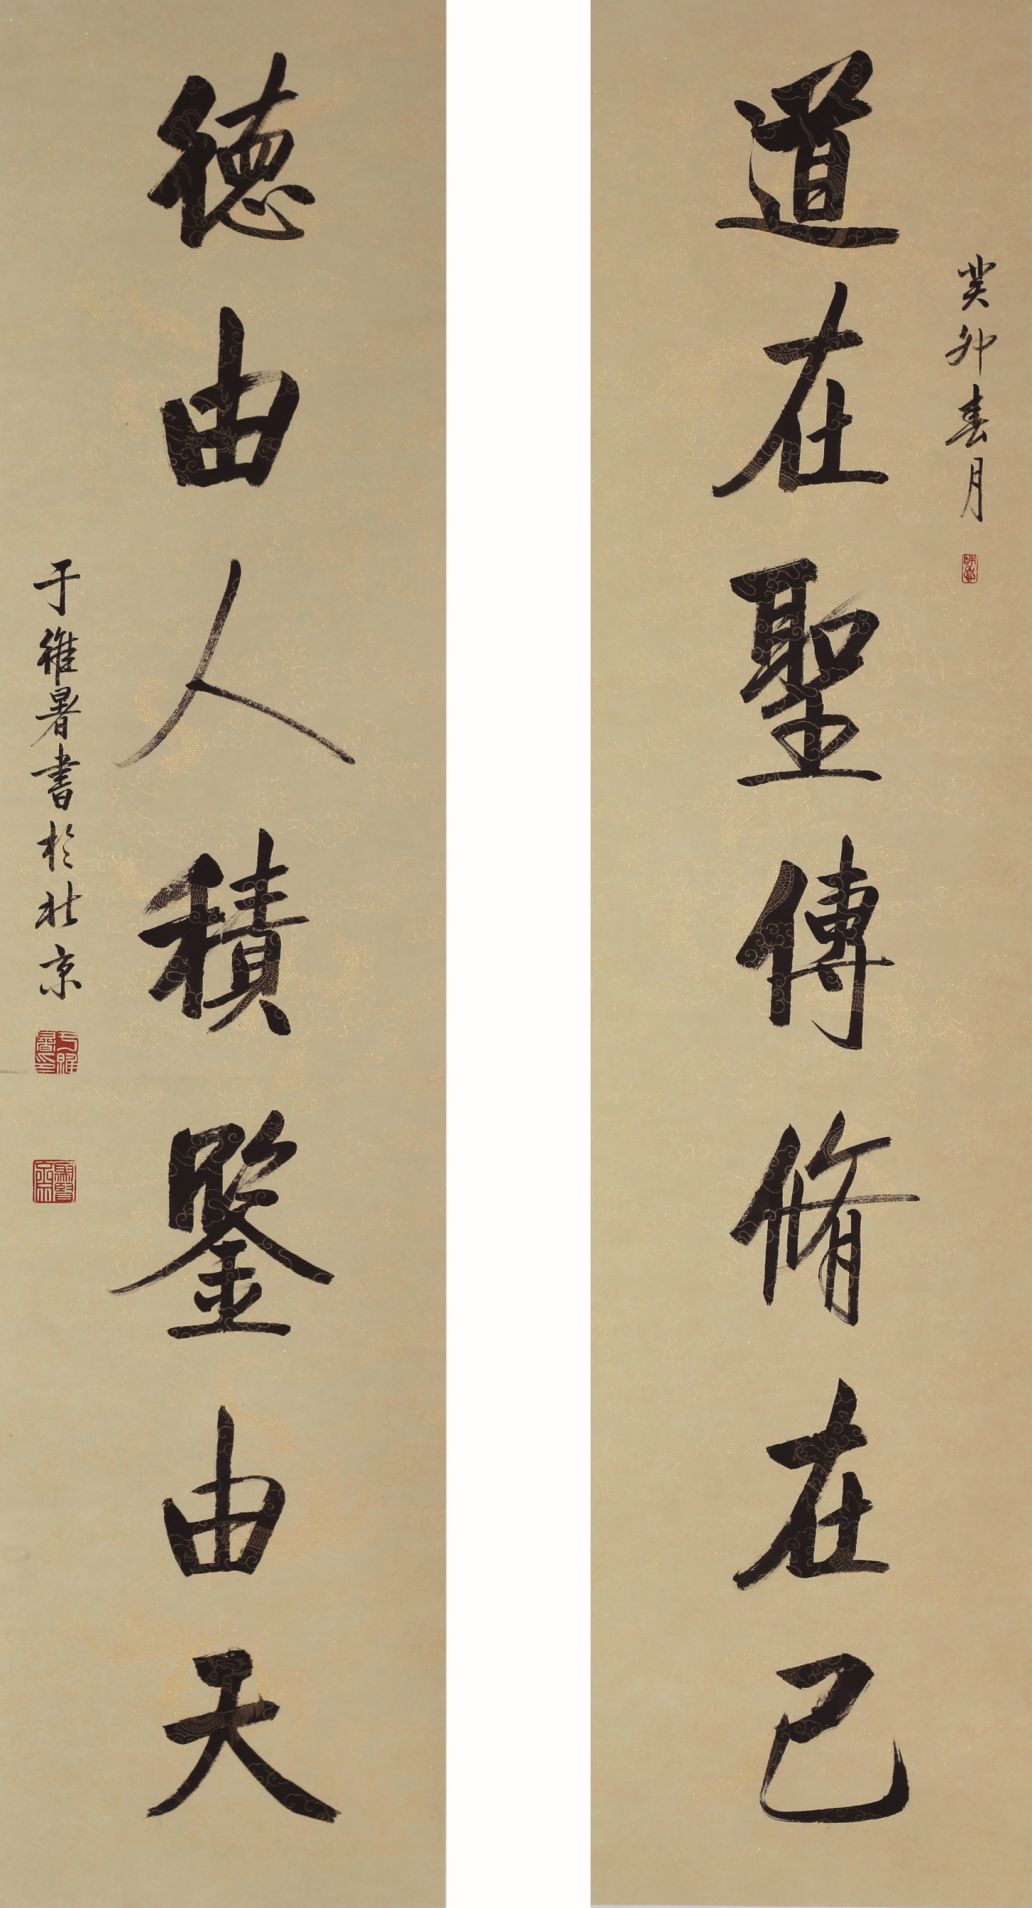 癸卯春月
道在聖傳脩在己
德由人積鑒由天
于維暑書於北京